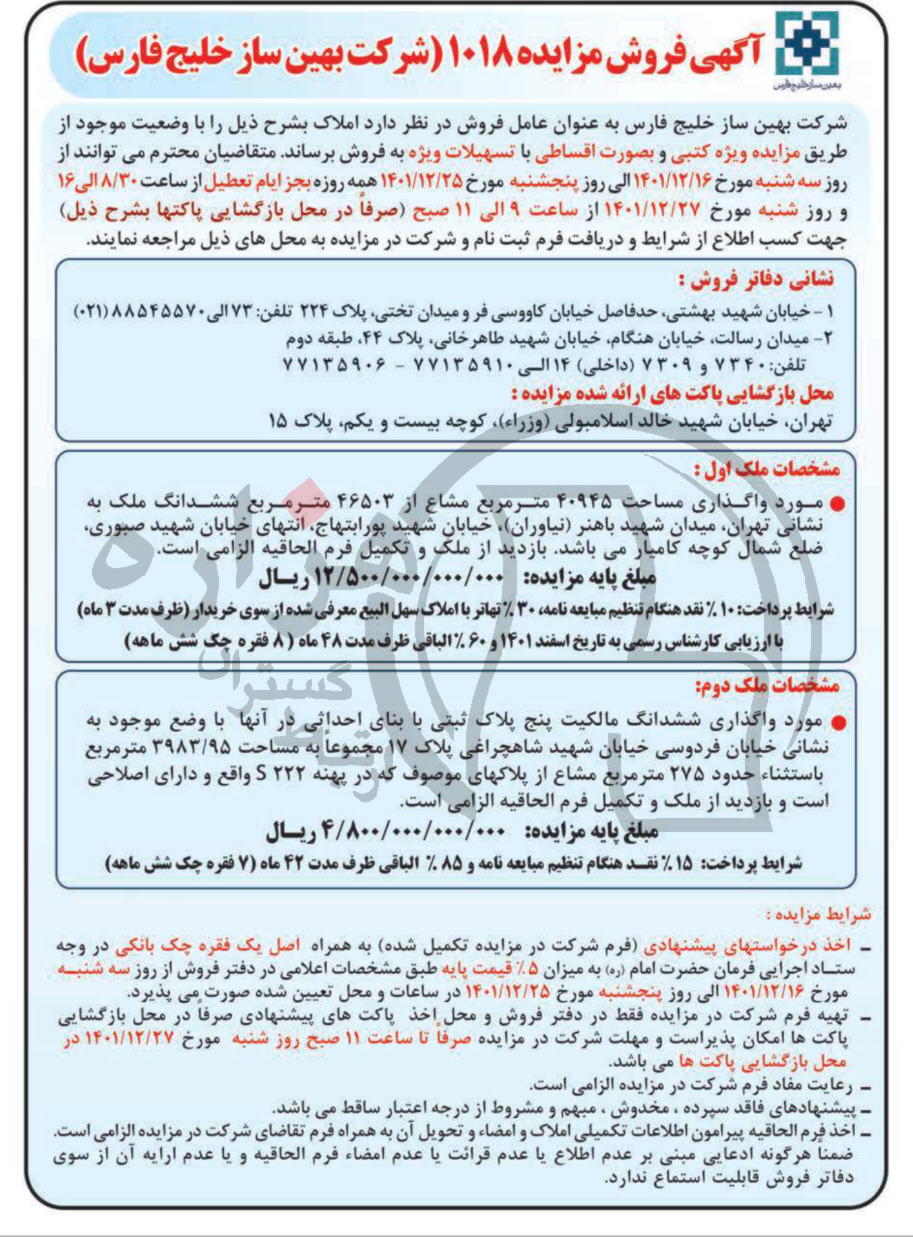 بهین‌ساز خلیج فارس
آگهی فروش مزایده ۱۰۱۸ (شرکت بهین ساز خلیج فارس)
شرکت بهین ساز خلیج فارس به عنوان عامل فروش در نظر دارد املاک بشرح ذیل را با وضعیت موجود از
طریق مزایده ویژه کتبی و بصورت اقساطی با تسهیلات ویژه به فروش برساند. متقاضیان محترم می توانند از
روز سه شنبه مورخ ۱۴۰۱/۱۲/۱۶ الی روز پنجشنبه مورخ ۱۴۰۱/۱۲/۲۵ همه روزه بجز ایام تعطیل از ساعت ۸/۳۰ الی ۱۶
و روز شنبه مورخ ۱۴۰۱/۱۲/۲۷ از ساعت ۹ الی ۱۱ صبح (صرفاً در محل بازگشایی پاکتها بشرح ذیل)
جهت کسب اطلاع از شرایط و دریافت فرم ثبت نام و شرکت در مزایده به محل های ذیل مراجعه نمایند.
نشانی دفاتر فروش :
۱- خیابان شهید بهشتی، حدفاصل خیابان کاووسی فر و میدان تختی، پلاک ۲۲۴ تلفن: ۷۳ الی ۸۸۵۴۵۵۷۰ (۰۲۱)
۲- میدان رسالت، خیابان هنگام، خیابان شهید طاهرخانی، پلاک ۴۴، طبقه دوم
تلفن: ۷۳۴۰ و ۷۳۰۹ (داخلی) ۱۴ الی ۷۷۱۳۵۹۱۰ - ۷۷۱۳۵۹۰۶
محل بازگشایی پاکت های ارائه شده مزایده :
تهران، خیابان شهید خالد اسلامبولی (وزراء)، کوچه بیست و یکم، پلاک ۱۵
مشخصات ملک اول :
● مورد واگذاری مساحت ۴۰۹۴۵ مترمربع مشاع از ۴۶۵۰۳ مترمربع ششدانگ ملک به
نشانی تهران، میدان شهید باهنر (نیاوران)، خیابان شهید پورابتهاج، انتهای خیابان شهید صبوری،
ضلع شمال کوچه کامیار می باشد. بازدید از ملک و تکمیل فرم الحاقیه الزامی است.
مبلغ پایه مزایده: ۱۲/۵۰۰/۰۰۰/۰۰۰/۰۰۰ ریال
شرایط پرداخت: ۱۰٪ نقد هنگام تنظیم مبایعه نامه، ۳۰٪ تهاتر با املاک سهل البیع معرفی شده از سوی خریدار (ظرف مدت ۳ ماه)
با ارزیابی کارشناس رسمی به تاریخ اسفند ۱۴۰۱ و ۶۰٪ الباقی ظرف مدت ۴۸ ماه (۸ فقره چک شش ماهه)
مشخصات ملک دوم:
● مورد واگذاری ششدانگ مالکیت پنج پلاک ثبتی با بنای احداثی در آنها با وضع موجود به
نشانی خیابان فردوسی خیابان شهید شاهچراغی پلاک ۱۷ مجموعاً به مساحت ۳۹۸۳/۹۵ مترمربع
باستثناء حدود ۲۷۵ مترمربع مشاع از پلاکهای موصوف که در پهنه S ۲۲۲ واقع و دارای اصلاحی
است و بازدید از ملک و تکمیل فرم الحاقیه الزامی است.
مبلغ پایه مزایده: ۴/۸۰۰/۰۰۰/۰۰۰/۰۰۰ ریال
شرایط پرداخت: ۱۵٪ نقد هنگام تنظیم مبایعه نامه و ۸۵٪ الباقی ظرف مدت ۴۲ ماه (۷ فقره چک شش ماهه)
شرایط مزایده :
- اخذ درخواستهای پیشنهادی (فرم شرکت در مزایده تکمیل شده) به همراه اصل یک فقره چک بانکی در وجه
ستاد اجرایی فرمان حضرت امام (ره) به میزان ۵٪ قیمت پایه طبق مشخصات اعلامی در دفتر فروش از روز سه شنبه
مورخ ۱۴۰۱/۱۲/۱۶ الی روز پنجشنبه مورخ ۱۴۰۱/۱۲/۲۵ در ساعات و محل تعیین شده صورت می پذیرد.
- تهیه فرم شرکت در مزایده فقط در دفتر فروش و محل اخذ پاکت های پیشنهادی صرفاً در محل بازگشایی
پاکت ها امکان پذیراست و مهلت شرکت در مزایده صرفاً تا ساعت ۱۱ صبح روز شنبه مورخ ۱۴۰۱/۱۲/۲۷ در
محل بازگشایی پاکت ها می باشد.
- رعایت مفاد فرم شرکت در مزایده الزامی است.
- پیشنهادهای فاقد سپرده ، مخدوش ، مبهم و مشروط از درجه اعتبار ساقط می باشد.
- اخذ فرم الحاقیه پیرامون اطلاعات تکمیلی املاک و امضاء و تحویل آن به همراه فرم تقاضای شرکت در مزایده الزامی است.
ضمنا هرگونه ادعایی مبنی بر عدم اطلاع یا عدم قرائت یا عدم امضاء فرم الحاقیه و یا عدم ارایه آن از سوی
دفاتر فروش قابلیت استماع ندارد.
هزاره
گستران